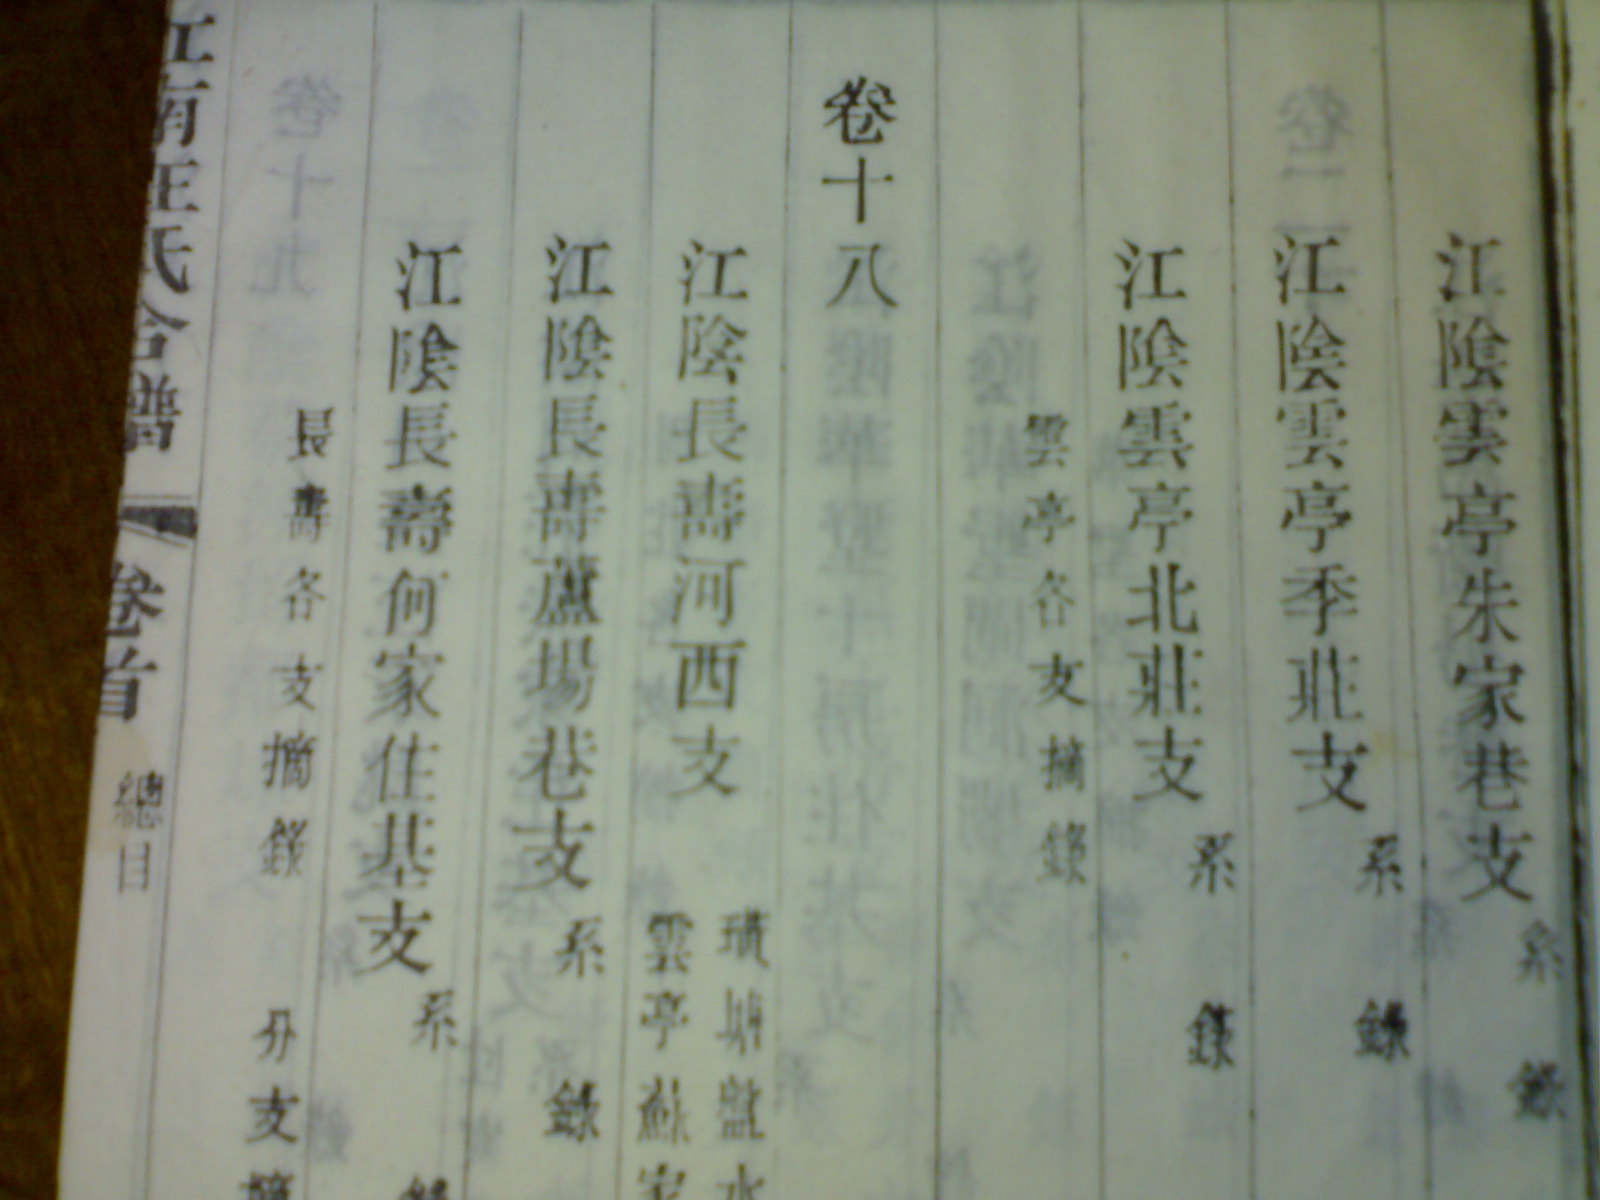 江陰雲亭朱家巷支 系 錄
江陰雲亭季莊支 系 錄
江陰雲亭北莊支 系 錄
雲亭各支摘錄
卷十八
江陰長壽河西支
璜塘 水
雲亭蘇家
江陰長壽蘆場巷支 系 錄
江陰長壽何家住基支 系 錄
長壽各支摘錄 分支
江南王氏合譜 卷首 總目